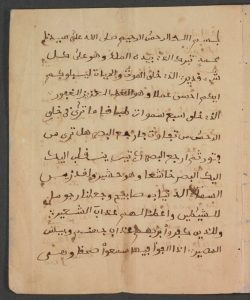 بسم الله الرحمن الرحيم صلى الله على
محمد تبرك الذي بيده الملك وهو على كل
شيء قدير الذي خلق الموت والحيات ليبلوكم
ايكم احسن عملا وهو العزيز الغفور
الذي خلق سبع سموات طباقا ما ترى في خلق
الرحمن من تفاوت فارجع البصر هل ترى من
فطور ثم ارجع البصر كرتين ينقلب اليك
اليك البصر خاسئا وهو حسير ولقد زينا
السماء الدنيا بمصابيح وجعلنها رجوما
للشيطين واعتدنا لهم عذاب السعير
وللذين كفروا بربهم عذاب جهنم وبيس
المصير اذا القوا فيها سمعوا لها وهي